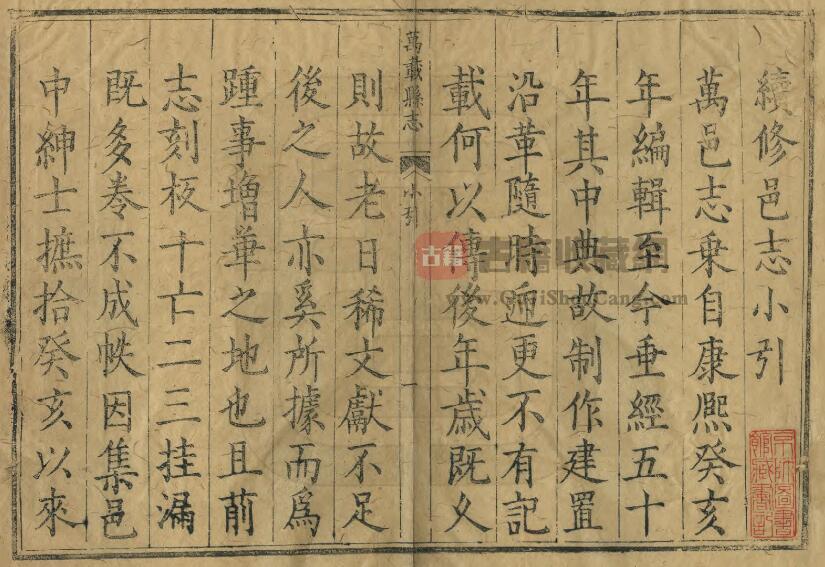 續修邑志小引
萬邑志乗自康熈癸亥
年編輯至今垂經五十
年其中典故制作建置
沿革隨時迎更不有記
載何以傳後年歳既乆
萬載縣志
小引
一
則故老日稀文獻不足
後之人亦奚所據而爲
踵事增華之地也且前
志刻板十亡二三挂漏
既多卷不成帙因集邑
中紳士摭拾癸亥以來
古籍
古籍收藏網
www.GuJiShouCang.com
京師圖書
館藏書記